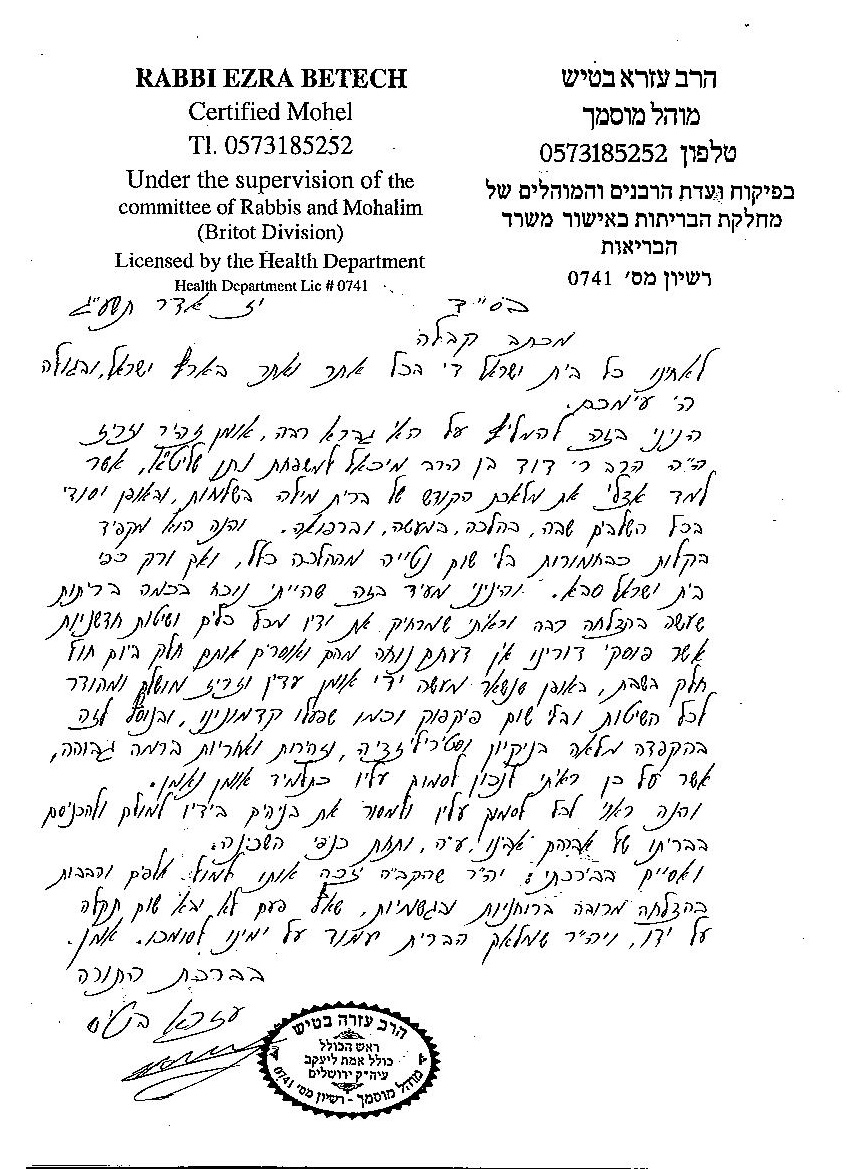 RABBI EZRA BETECH
Certified Mohel
Tl. 0573185252
Under the supervision of the
committee of Rabbis and Mohalim
(Britot Division)
Licensed by the Health Department
Health Department Lic # 0741
הרב עזרא בטיש
מוהל מוסמך
טלפון 0573185252
בפיקוח ועדת הרבנים והמוהלים של
מחלקת הבריתות באישור משרד
הבריאות
רשיון מס' 0741
בס"ד יז אדר תשע"ג
מכתב קבלה
לאחינו כל בית ישראל די בכל אתר ואתר בארץ ישראל, ובגולה
ה' עימכם.
הנני בזה להמליץ על האי גברא רבה, אומן זהיר וזריז
ה"ה הרב ר' דוד בן הרב מיכאל למשפחת נתן שליט"א, אשר
למד אצלי את מלאכת הקודש של ברית מילה בשלמות, ובאופן יסודי
בכל השלבים שבה, בהלכה, במעשה, וברפואה. והנה הוא מקפיד
בקלות כבחמורות בלי שום נטייה מההלכה כלל, ואך ורק כפי
בית ישראל סבא. והנני מעיד בזה שהייתי נוכח בכמה בריתות
שעשה בהצלחה רבה וראיתי שמרחיק את ידיו מכל כלים ושיטות חדשניות
אשר פוסקי דורינו אין דעתם נוחה מהם ואוסרים אותם חלק ביום חול
חלק בשבת, באופן שנשאר מעשה ידי אומן עדין וזריז מושלם ומהודר
לכל השיטות ובלי שום פיקפוק וכמו שפעלו קדמונינו, ובנוסף לזה
בהקפדה מלאה בניקיון וסטריליזציה, וזהירות ואחריות ברמה גבוהה,
אשר על כן ראיתי לנכון לסמוך עליו כתלמיד אומן נאמן.
והנה ראוי לכל לסמוך עליו ולמסור את בניהם בידיו למולם ולהכניסם
בבריתו של אברהם אבינו ע"ה, ותחת כנפי השכינה.
ואסיים בברכתי: יה"ר שהקב"ה יזכה אותו למול אלפים ורבבות
בהצלחה מרובה ברוחניות ובגשמיות, שאף פעם לא יבא שום תקלה
על ידו, ויה"ר שמלאך הברית יעמוד על ימינו לסומכו. אמן.
בברכת התורה
עזרא בטיש
הרב עזרה בטיש
ראש הכולל
כולל אמת ליעקב
עיה"ק ירושלים
מוהל מוסמך - רשיון מס' 0741